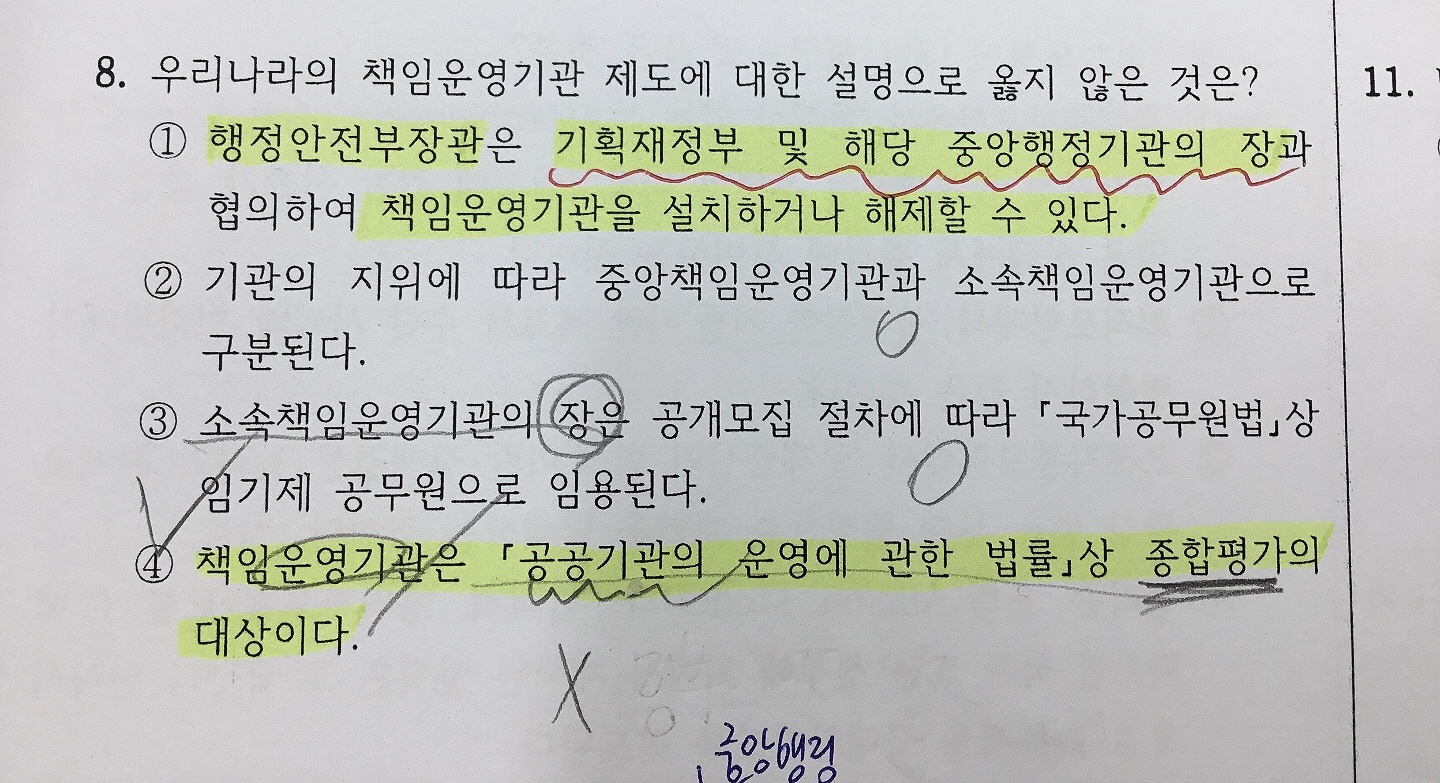 8. 우리나라의 책임운영기관 제도에 대한 설명으로 옳지 않은 것은?
① 행정안전부장관은 기획재정부 및 해당 중앙행정기관의 장과
협의하여 책임운영기관을 설치하거나 해제할 수 있다.
② 기관의 지위에 따라 중앙책임운영기관과 소속책임운영기관으로
구분된다.
③ 소속책임운영기관의 장은 공개모집 절차에 따라 「국가공무원법」상
임기제 공무원으로 임용된다.
④ 책임운영기관은 「공공기관의 운영에 관한 법률」상 종합평가의
대상이다.
X
중앙행정
11.